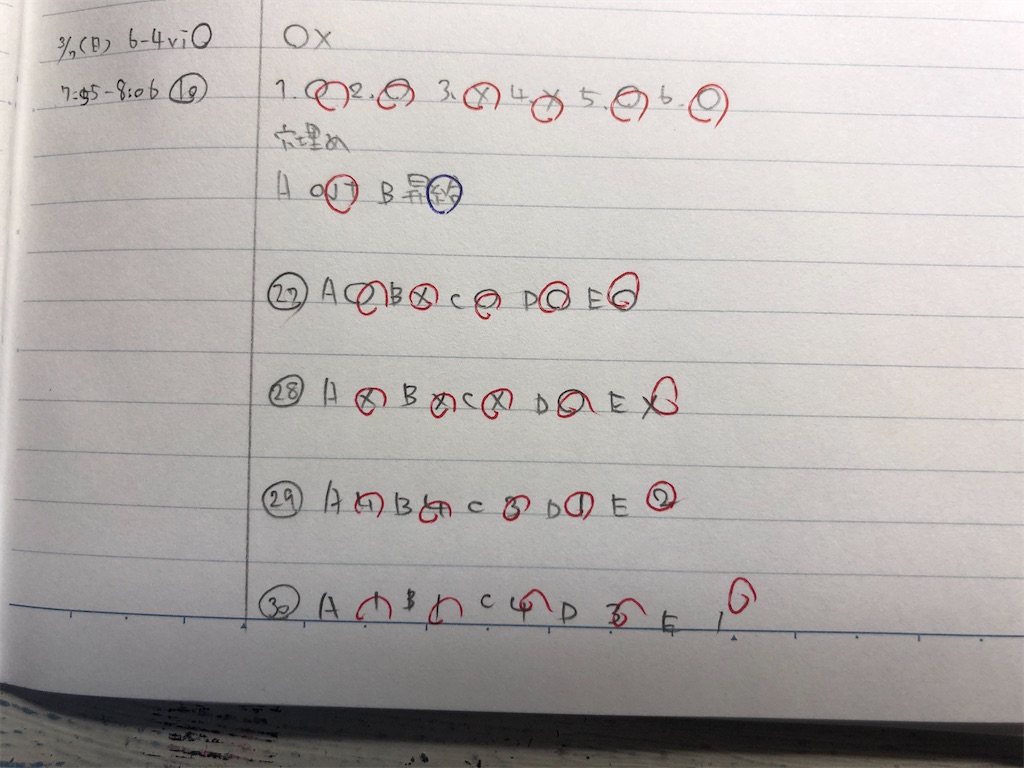 3/7(日) 6-4vi○ ○×
7:55-8:06 ⑩ 1.○ 2.○ 3.× 4.× 5.○ 6.○
穴埋め
A B 昇給
㉗ A ○ B × C ○ D ○ E ○
㉘ A × B × C × D ○ E ×
㉙ A 4 B 4 C 3 D 1 E 2
㉚ A 1 B 1 C 4 D 3 E 1